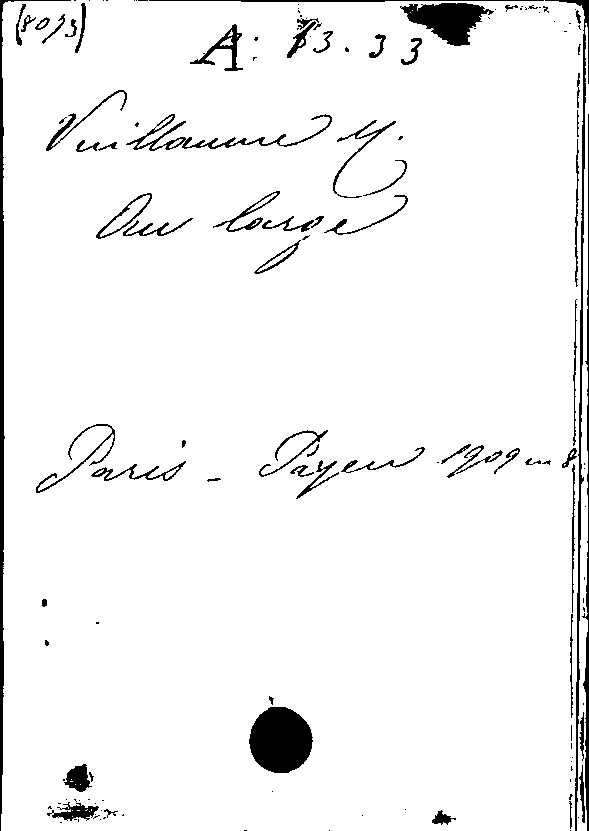 (8073)
A: 13.33
Vuillaume M.
Au large
Paris - Payen 1909 in 8